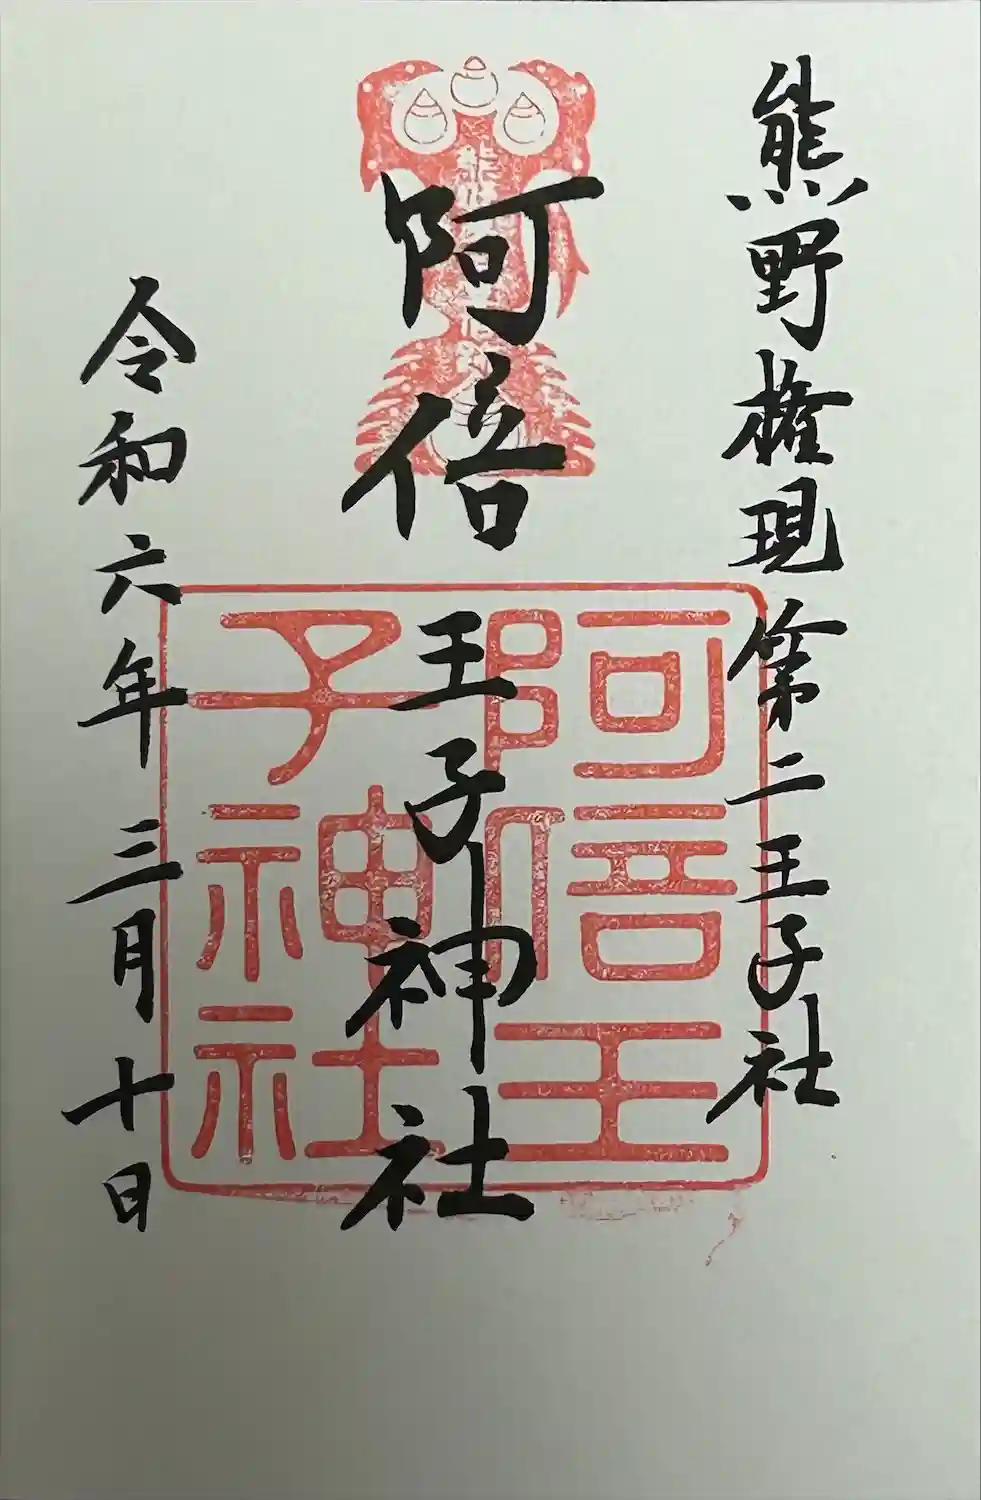 熊野権現第二王子社
阿倍王子神社
令和六年三月十日
阿倍王
子神社